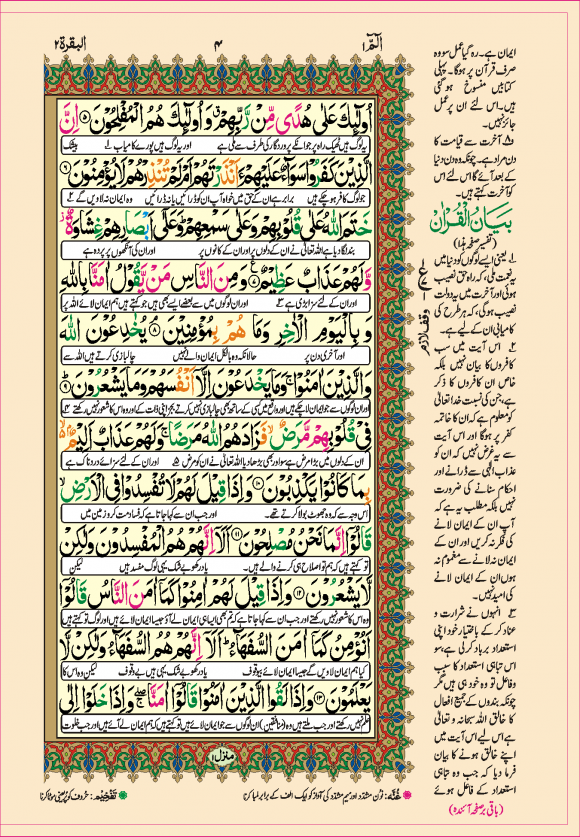 الٓمّٓ ۱
۴
البقرة ۲
اُولٰٓئِكَ عَلٰى هُدًى مِّنْ رَّبِّهِمْ ۗ وَاُولٰٓئِكَ هُمُ الْمُفْلِحُوْنَ ۵ اِنَّ
یہ لوگ ہیں ٹھیک راہ پر جو انکے پروردگار کی طرف سے ملی ہے اور یہ لوگ ہیں پورے کامیاب بیشک
الَّذِيْنَ كَفَرُوْا سَوَآءٌ عَلَيْهِمْ ءَاَنْذَرْتَهُمْ اَمْ لَمْ تُنْذِرْهُمْ لَا يُؤْمِنُوْنَ ۶
جو لوگ کافر ہو چکے ہیں برابر ہے ان کے حق میں خواہ آپ ان کو ڈرائیں یا نہ ڈرائیں وہ ایمان نہ لاویں گے
خَتَمَ اللّٰهُ عَلٰى قُلُوْبِهِمْ وَعَلٰى سَمْعِهِمْ ۗ وَعَلٰٓى اَبْصَارِهِمْ غِشَاوَةٌ
بند لگا دیا ہے اللہ تعالیٰ نے ان کے دلوں پر اور ان کے کانوں پر اور ان کی آنکھوں پر پردہ ہے
وَّلَهُمْ عَذَابٌ عَظِيْمٌ ۷ وَمِنَ النَّاسِ مَنْ يَّقُوْلُ اٰمَنَّا بِاللّٰهِ
اور ان کے لئے سزا بڑی ہے اور ان لوگوں میں سے بعضے ایسے بھی ہیں جو کہتے ہیں ہم ایمان لائے اللہ پر
وَ بِالْيَوْمِ الْاٰخِرِ وَمَا هُمْ بِمُؤْمِنِيْنَ ۸ يُخٰدِعُوْنَ اللّٰهَ
اور آخری دن پر حالانکہ وہ بالکل ایمان والے نہیں چالبازی کرتے ہیں اللہ سے
وَالَّذِيْنَ اٰمَنُوْا ۚ وَمَا يَخْدَعُوْنَ اِلَّآ اَنْفُسَهُمْ وَمَا يَشْعُرُوْنَ ۹
اور ان لوگوں سے جو ایمان لا چکے ہیں اور واقع میں کسی کے ساتھ بھی چالبازی نہیں کرتے بجز اپنی ذات کے اور وہ اس کا شعور نہیں رکھتے
فِيْ قُلُوْبِهِمْ مَّرَضٌ ۙ فَزَادَهُمُ اللّٰهُ مَرَضًا ۚ وَلَهُمْ عَذَابٌ اَلِيْمٌ
ان کے دلوں میں بڑا مرض ہے سو اور بھی بڑھا دیا اللہ تعالیٰ نے ان کو مرض اور ان کے لئے سزائے دردناک ہے
بِمَا كَانُوْا يَكْذِبُوْنَ ۱۰ وَاِذَا قِيْلَ لَهُمْ لَا تُفْسِدُوْا فِى الْاَرْضِ
اس وجہ سے کہ وہ جھوٹ بولا کرتے تھے۔ اور جب ان سے کہا جاتا ہے کہ فساد مت کرو زمین میں
قَالُوْٓا اِنَّمَا نَحْنُ مُصْلِحُوْنَ ۱۱ اَلَآ اِنَّهُمْ هُمُ الْمُفْسِدُوْنَ وَلٰكِنْ
تو کہتے ہیں کہ ہم تو اصلاح ہی کرنے والے ہیں۔ یاد رکھو بے شک یہی لوگ مفسد ہیں لیکن
لَّا يَشْعُرُوْنَ ۱۲ وَاِذَا قِيْلَ لَهُمْ اٰمِنُوْا كَمَآ اٰمَنَ النَّاسُ قَالُوْٓا
وہ اس کا شعور نہیں رکھتے اور جب ان سے کہا جاتا ہے کہ تم بھی ایسا ہی ایمان لے آؤ جیسا ایمان لائے ہیں اور لوگ تو کہتے ہیں
اَنُؤْمِنُ كَمَآ اٰمَنَ السُّفَهَآءُ ۗ اَلَآ اِنَّهُمْ هُمُ السُّفَهَآءُ وَلٰكِنْ لَّا
کیا ہم ایمان لاویں گے جیسا ایمان لائے ہیں بیوقوف یاد رکھو بے شک یہی ہیں بے وقوف لیکن وہ اس کا
يَعْلَمُوْنَ ۱۳ وَاِذَا لَقُوا الَّذِيْنَ اٰمَنُوْا قَالُوْٓا اٰمَنَّا ۖ وَاِذَا خَلَوْا اِلٰى
علم نہیں رکھتے اور جب ملتے ہیں وہ (منافقین) ان لوگوں سے جو ایمان لائے ہیں تو کہتے ہیں کہ ہم ایمان لے آئے ہیں اور جب خلوت
منزل ۱
وقف لازم
ایمان ہے۔ رہ گیا عمل سو وہ
صرف قرآن پر ہوگا۔ پہلی
کتابیں منسوخ ہوگئی
ہیں۔ اس لئے ان پر عمل
جائز نہیں۔
۵ آخرت سے قیامت کا
دن مراد ہے۔ چونکہ وہ دن دنیا
کے بعد آئے گا اس لئے اس
کو آخرت کہتے ہیں۔
بیان القرآن
(تفسیر صفحہ ہذا)
۱ یعنی ایسے لوگوں کو دنیا میں
یہ نعمت ملی، کہ راہ حق نصیب
ہوئی اور آخرت میں یہ دولت
نصیب ہوگی، کہ ہر طرح کی
کامیابی ان کے لیے ہے۔
۲ اس آیت میں سب
کافروں کا بیان نہیں بلکہ
خاص ان کافروں کا ذکر
ہے، جن کی نسبت خدا تعالیٰ
کو معلوم ہے کہ ان کا خاتمہ
کفر پر ہوگا اور اس آیت
سے یہ غرض نہیں کہ ان کو
عذاب الٰہی سے ڈرانے اور
احکام سنانے کی ضرورت
نہیں بلکہ مطلب یہ ہے کہ
آپ ان کے ایمان لانے
کی فکر نہ کریں اور ان کے
ایمان نہ لانے سے مغموم نہ
ہوں ان کے ایمان لانے
کی امید نہیں۔
۳ انہوں نے شرارت و
عناد کر کے باختیار خود اپنی
استعداد برباد کرلی ہے، سو
اس تباہی استعداد کا سبب
و فاعل تو وہ خود ہی ہیں مگر
چونکہ بندوں کے جمیع افعال
کا خالق اللہ سبحانہ و تعالیٰ
ہے اس لیے اس آیت میں
اپنے خالق ہونے کا بیان
فرما دیا کہ جب وہ تباہی
استعداد کے فاعل ہوئے
(باقی بر صفحہ آئندہ)
غُنّہ: نون مشدّد اور میم مشدّد کی آواز کو ایک الف کے برابر لمبا کرنا
تفخیم: حروف کو پُر یعنی موٹا کرنا